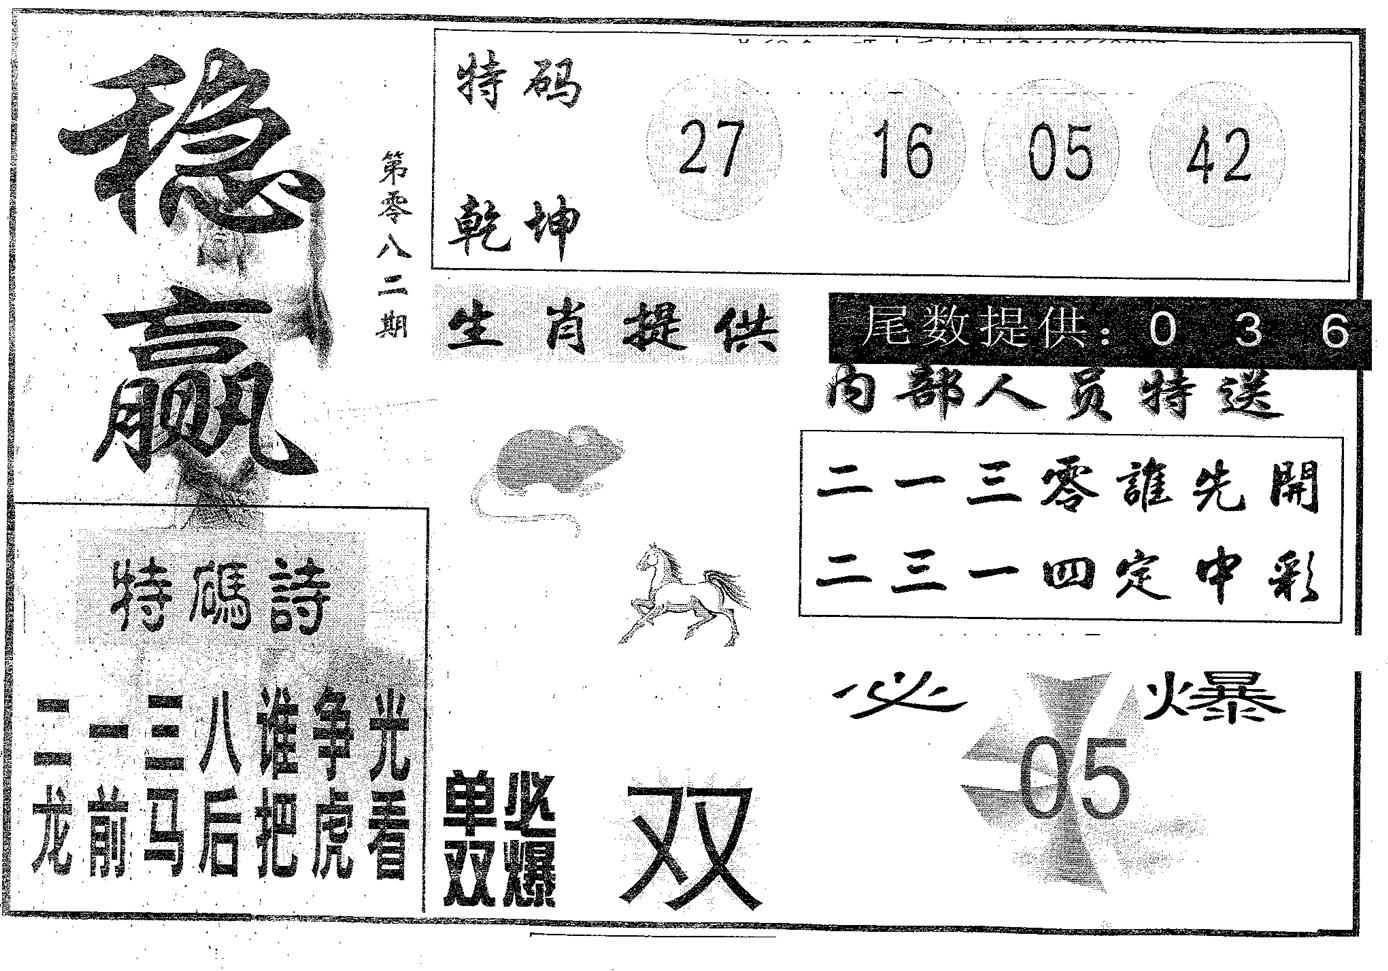 稳赢
第零八二期
特码
乾坤
27 16 05 42
生肖提供
尾数提供: 0 3 6
内部人员特送
二一三零誰先開
二三一四定中彩
特碼詩
二一三八谁争光
龙前马后把虎看
单双
必爆
双
必爆
05